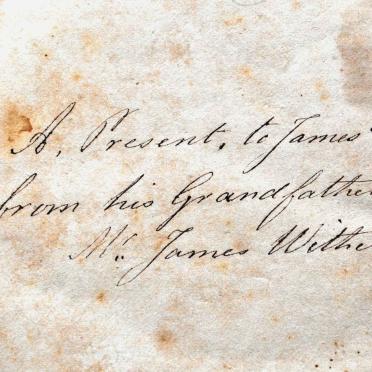 A, Present, to James
from his Grandfather
Mr. James Withe